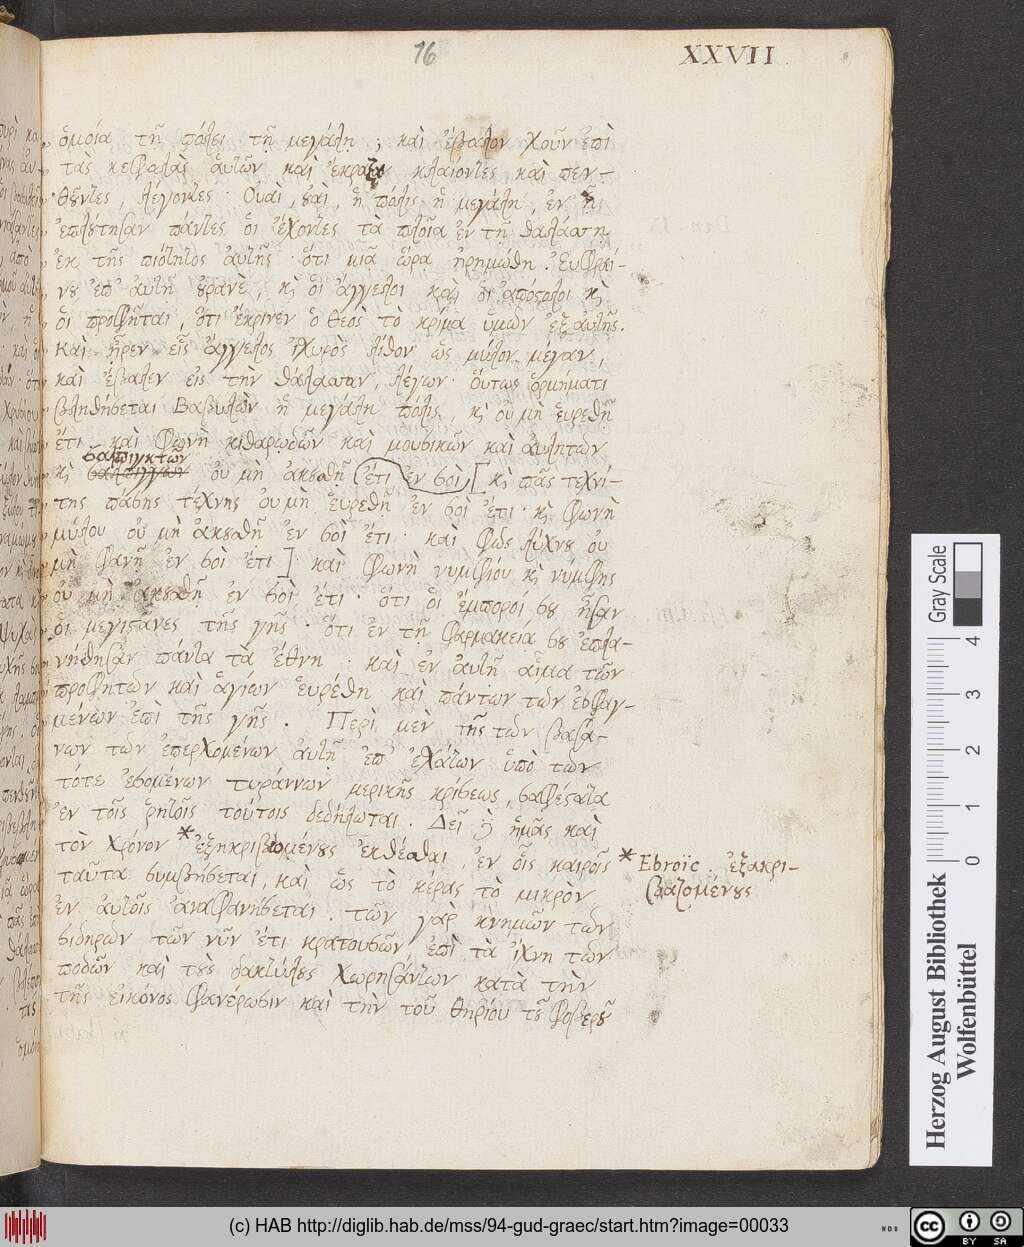 16
XXVII
ὁμοία τῇ πόλει τῇ μεγάλῃ; καὶ ἔβαλον χοῦν ἐπὶ
τὰς κεφαλὰς ἁυτῶν καὶ ἔκραζον κλαίοντες καὶ πεν-
θοῦντες, λέγοντες· Ουαὶ, ουαὶ, ἡ πόλις ἡ μεγάλη, ἐν ᾗ
ἐπλούτησαν πάντες ὁι ἔχοντες τὰ πλοῖα ἐν τῇ θαλάσσῃ
ἐκ τῆς πιότητος ἀυτῆς· ὅτι μιᾷ ὥρᾳ ἠρημώθη. Ἐυφραί-
νου ἐπ' ἀυτῇ ουρανὲ, κὶ ὁι ἄγγελοι καὶ οἱ ἀπόστολοι κὶ
ὁι προφῆται, ὅτι ἔκρινεν ὁ θεὸς τὸ κρίμα ὑμῶν ἐξ ἀυτῆς.
Καὶ ἦρεν εἷς ἄγγελος ἰσχυρὸς λίθον ὡς μύλον μέγαν,
καὶ ἔβαλεν εἰς τὴν θάλασσαν, λέγων· ὅυτως ὁρμήματι
βληθήσεται Βαβυλὼν ἡ μεγάλη πόλις, κὶ οὐ μὴ ἑυρεθῇ
ἔτι· καὶ φωνὴ κιθαρῳδῶν καὶ μουσικῶν καὶ ἀυλητῶν
σαλπιγκτῶν
κὶ σαλπίγγων οὐ μὴ ἀκουσθῇ (ἔτι ἐν σοὶ) [κὶ πᾶς τεχνί-
της πάσης τέχνης οὐ μὴ ἑυρεθῇ ἐν σοὶ ἔτι· κὶ φωνὴ
μύλου οὐ μὴ ἀκουσθῇ ἐν σοὶ ἔτι· καὶ φῶς λύχνου οὐ
μὴ φανῇ ἐν σοὶ ἔτι]· καὶ φωνὴ νυμφίου κὶ νύμφης
οὐ μὴ ἀκουσθῇ ἐν σοὶ ἔτι· ὅτι ὁι ἔμποροί σου ἦσαν
ὁι μεγιστᾶνες τῆς γῆς· ὅτι ἐν τῇ φαρμακείᾳ σου ἐπλα-
νήθησαν πάντα τὰ ἔθνη· καὶ ἐν ἀυτῇ αἷμα τῶν
προφητῶν καὶ ἁγίων ἑυρέθη καὶ πάντων τῶν ἐσφαγ-
μένων ἐπὶ τῆς γῆς. Περὶ μὲν τῆς τῶν βασά-
νων τῶν ἐπερχομένων ἀυτῇ ἐπ' ἐσχάτων ὑπὸ τῶν
τότε ἐσομένων τυράννων μερικῆς κρίσεως, σαφέσατα
ἐν τοῖς ῥητοῖς τούτοις δεδήλωται. Δεῖ ἡμᾶς καὶ
τὸν χρόνον * ἐξηκριβωμένους ἐκθέσθαι, ἐν οἷς καιροῖς
* Ebroïc. ἐξακρι-
βαζομένους
ταῦτα συμβήσεται, καὶ ὡς τὸ κέρας τὸ μικρὸν
ἐν ἀυτοῖς ἀναφανήσεται. τῶν γὰρ κνημῶν τῶν
σιδηρῶν τῶν νῦν ἔτι κρατουσῶν ἐπὶ τὰ ἴχνη τῶν
ποδῶν καὶ τοὺς δακτύλους χωρησάντων κατὰ τὴν
τῆς εἰκόνος φανέρωσιν καὶ τὴν τοῦ θηρίου τοῦ φοβεροῦ
Herzog August Bibliothek
Wolfenbüttel
Gray Scale
0 1 2 3 4
(c) HAB http://diglib.hab.de/mss/94-gud-graec/start.htm?image=00033
WDB
cc BY SA